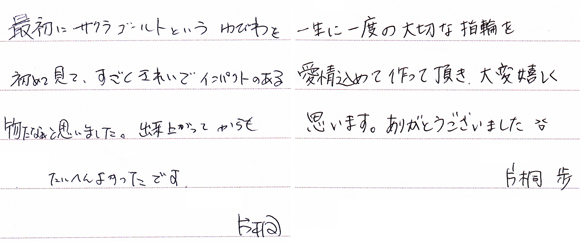 最初に サクラゴールトという ゆびわを
初めて見て、すごくきれいで インパクトのある
物だなぁと思いました。出来上がって からも
たいへんよかったです
片桐
一生に一度の大切な指輪を
愛情込めて作って頂き、大変嬉しく
思います。ありがとうございました
片桐 歩